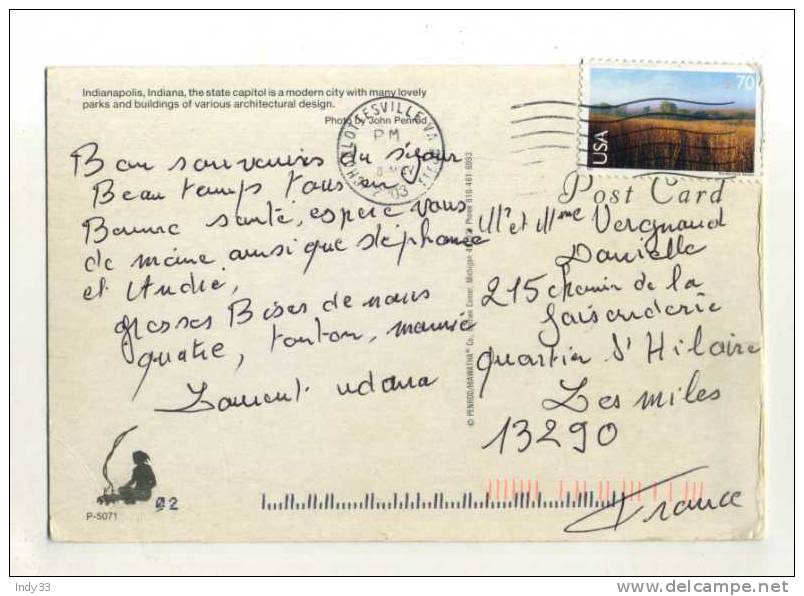 Indianapolis, Indiana, the state capitol is a modern city with many lovely
parks and buildings of various architectural design.
Photo by John Penrod
CHARLOTTESVILLE VA
PM
03
70
USA
Post Card
Bon souvenirs du séjour
Beau temps tous
Bonne santé, espere vous
de meine ainsi que stéphanie
et André,
grosses Bises de nous
quatre, tonton,
Mr et Mme Vergnaud
Danielle
215 chemin de la
faisenderie
quartier St Hilaire
Les miles
13290
France
© PENROD/HIAWATHA® Co., Center, Michigan Phone 616-461-6993
P-5071
92
Indy33
delcampe.net